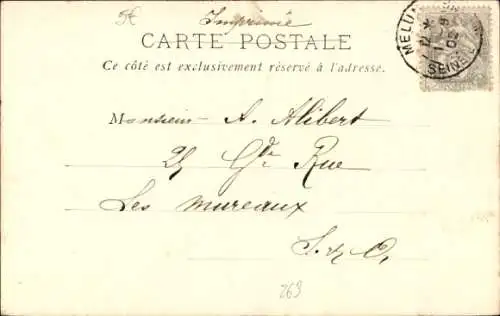 Imprimée
CARTE POSTALE
Ce côté est exclusivement réservé à l'adresse.
MELUN
SEINE
02
Monsieur A. Alibert
25 Gde Rue
Les Mureaux
S. & O.
263